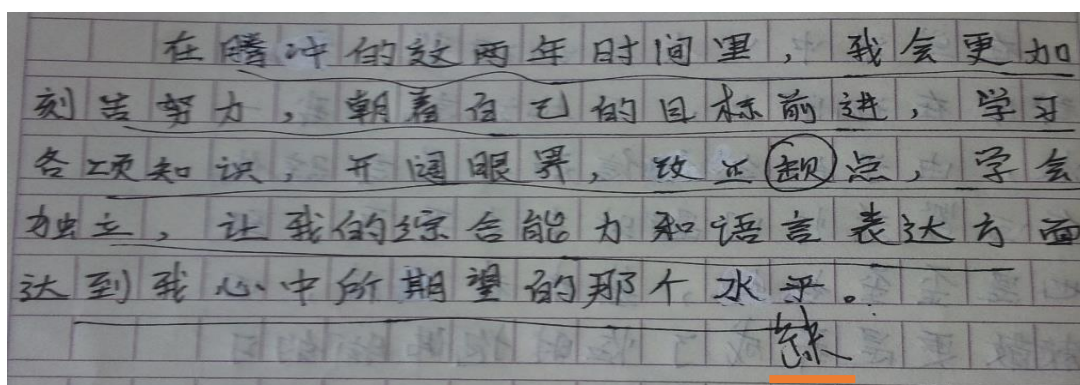 在腾冲的这两年时间里，我会更加
刻苦努力，朝着自己的目标前进，学习
各项知识，开阔眼界，改正缺点，学会
独立，让我的综合能力和语言表达方面
达到我心中所期望的那个水平。
缺